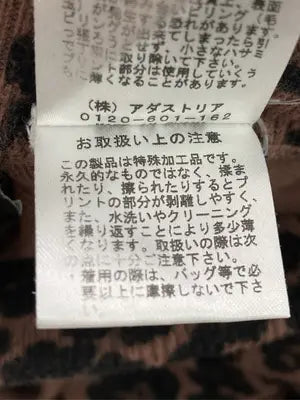 取り除いて下さい。
ト部分は使用していくう
なることがあります。
(株) アダストリア
0120-601-162
お取扱い上の注意
この製品は特殊加工品です。
永久的なものではなく、揉ま
れたり、擦られたりするとプ
リントの部分が剥離しやすく、
また、水洗いやクリーニング
を繰り返すことにより多少薄
くなります。取扱いの際は次
の点に十分ご注意下さい。
着用の際は、バッグ等で必
要以上に摩擦しないで下さ